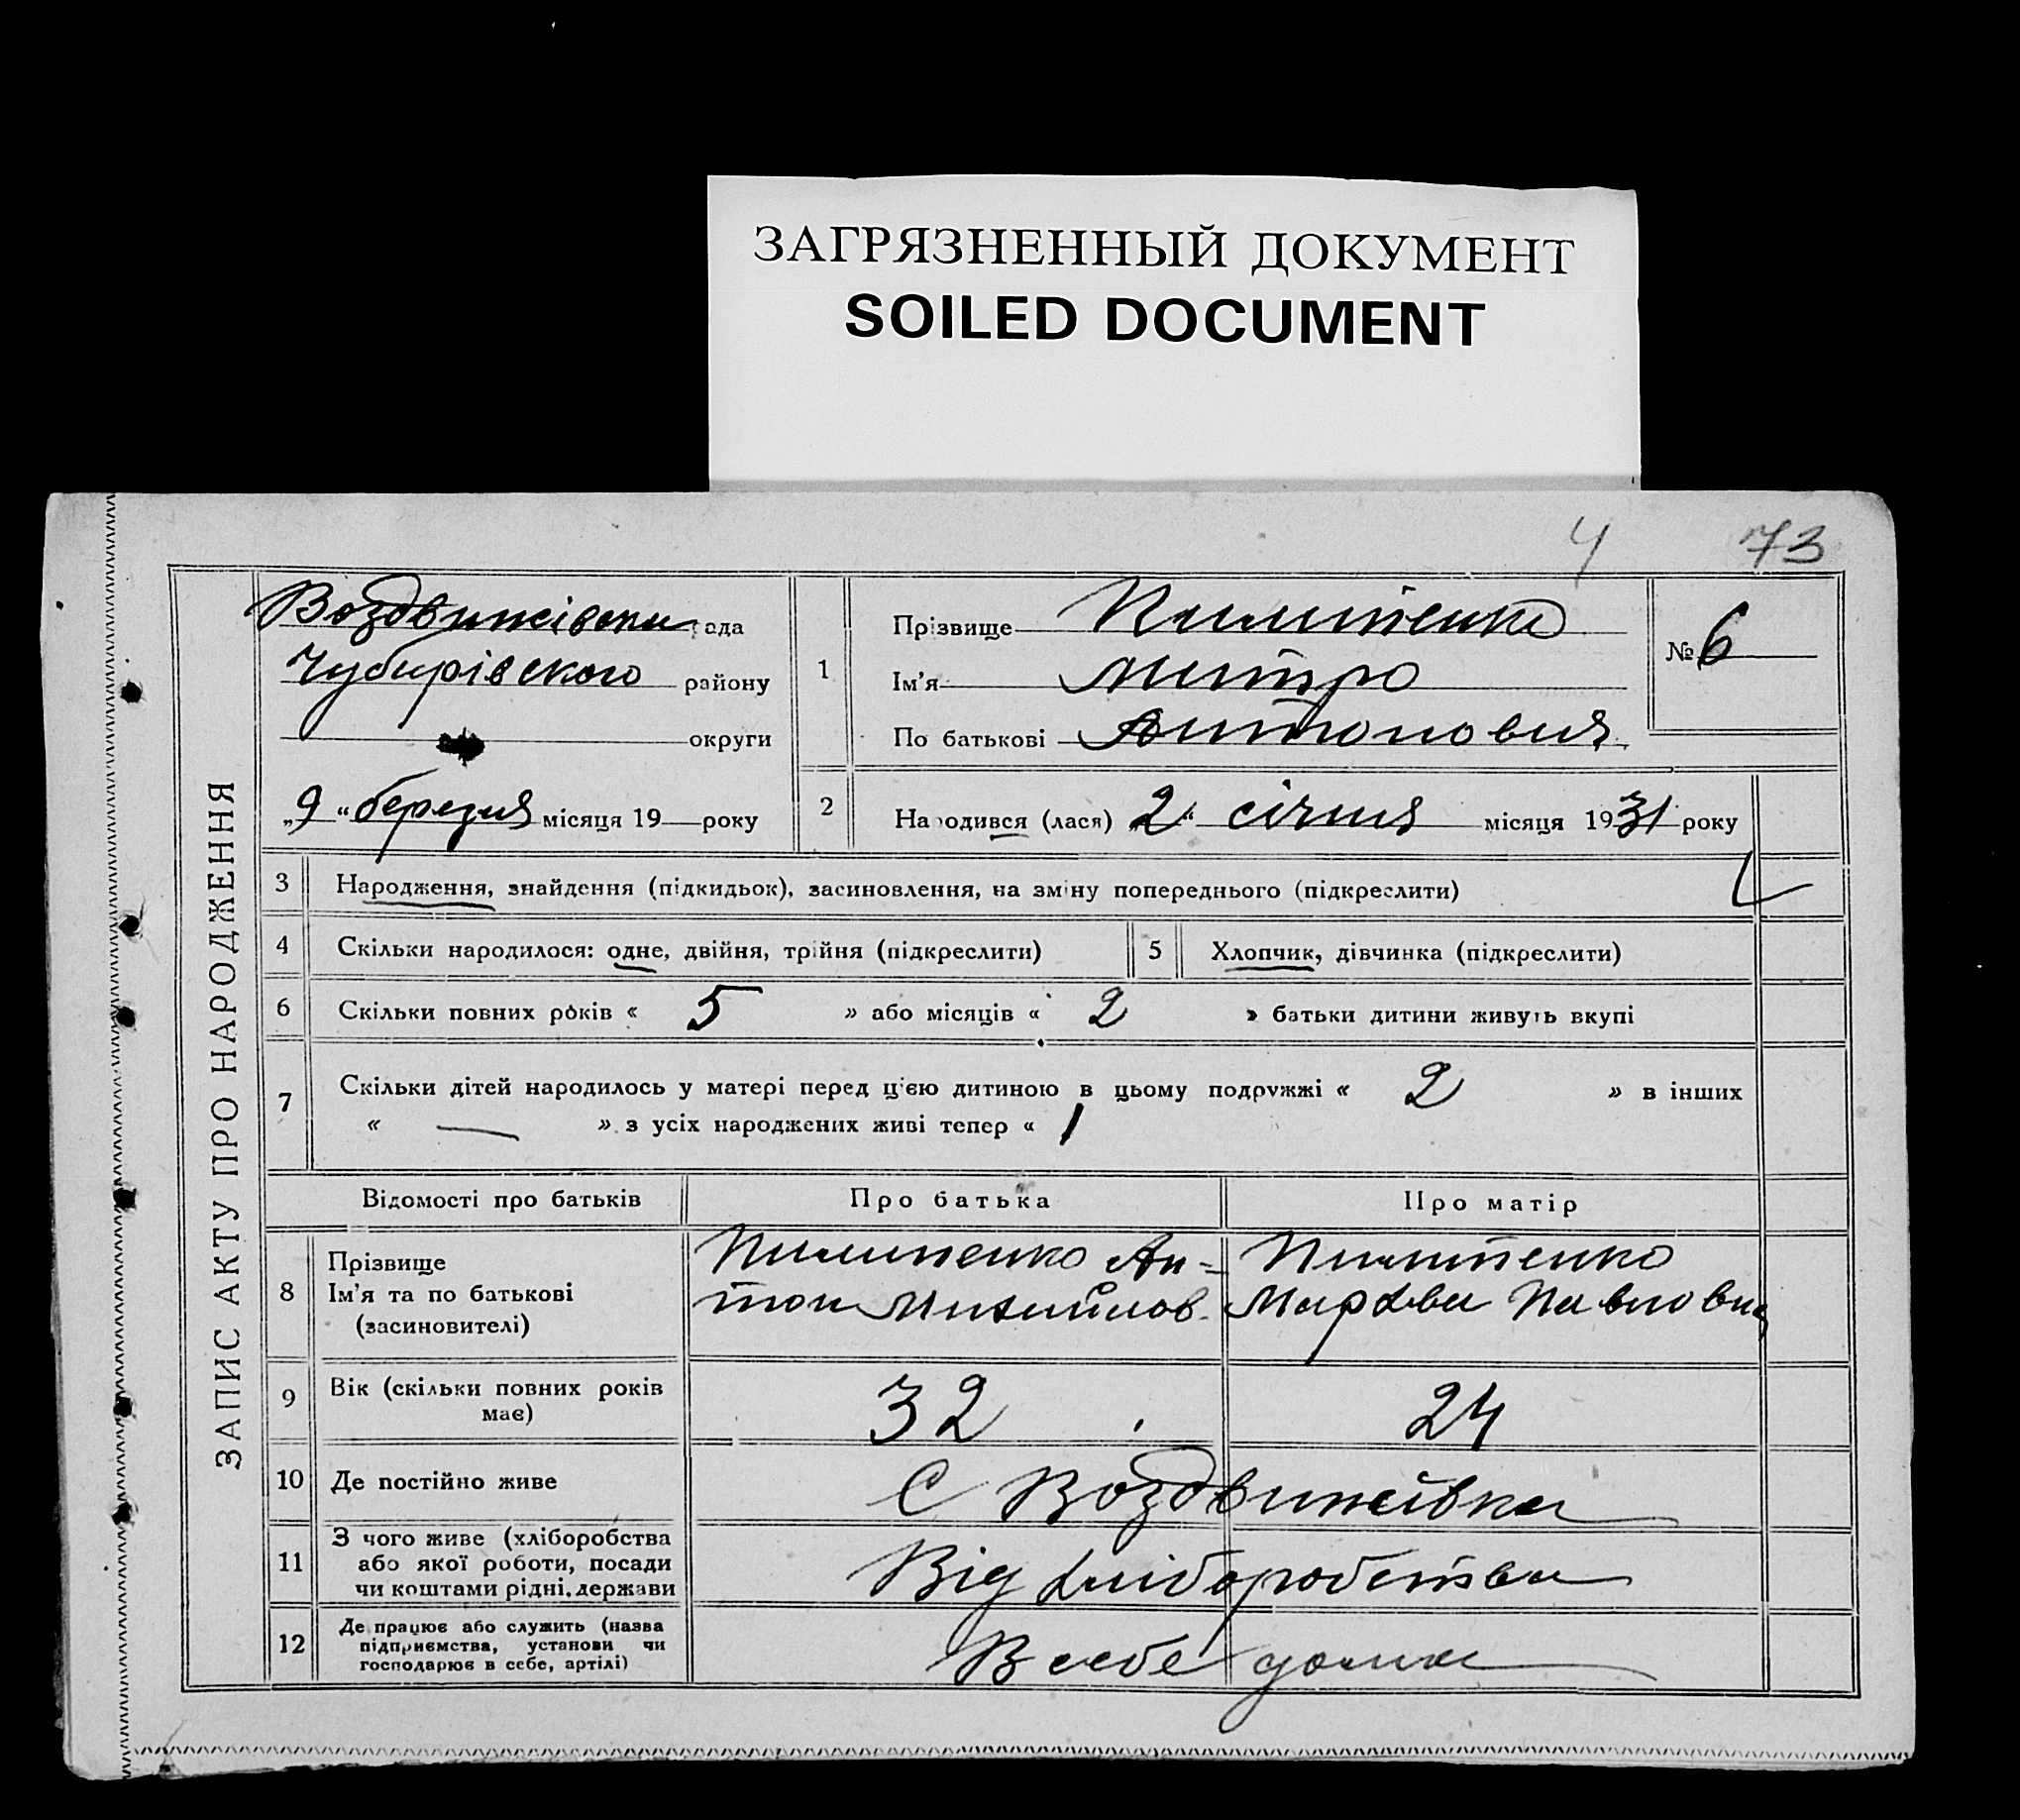 ЗАГРЯЗНЕННЫЙ ДОКУМЕНТ
SOILED DOCUMENT
4 73
ЗАПИС АКТУ ПРО НАРОДЖЕННЯ
Воздвижівська рада
Чубарівского району
округи
„9“ березня місяця 19 року
1
Прізвище Пилипенко
Ім'я Митро
По батькові Антонович
№ 6
2 Народився (лася) „2“ січня місяця 1931 року
3 Народження, знайдення (підкидьок), засиновлення, на зміну попереднього (підкреслити)
4 Скільки народилося: одне, двійня, трійня (підкреслити) 5 Хлопчик, дівчинка (підкреслити)
6 Скільки повних років « 5 » або місяців « 2 » батьки дитини живуть вкупі
7 Скільки дітей народилось у матері перед цією дитиною в цьому подружжі « 2 » в інших
« — » з усіх народжених живі тепер « 1
Відомості про батьків Про батька Про матір
8 Прізвище
Ім'я та по батькові
(засиновителі)
Пилипенко Ан-
тон Михайлов.
Пилипенко
Мархва Павловна
9 Вік (скільки повних років
має)
32 24
10 Де постійно живе С Воздвижівка
11 З чого живе (хліборобства
або якої роботи, посади
чи коштами рідні, держави
Від хліборобства
12 Де працює або служить (назва
підприємства, установи чи
господарює в себе, артілі)
В себе дома